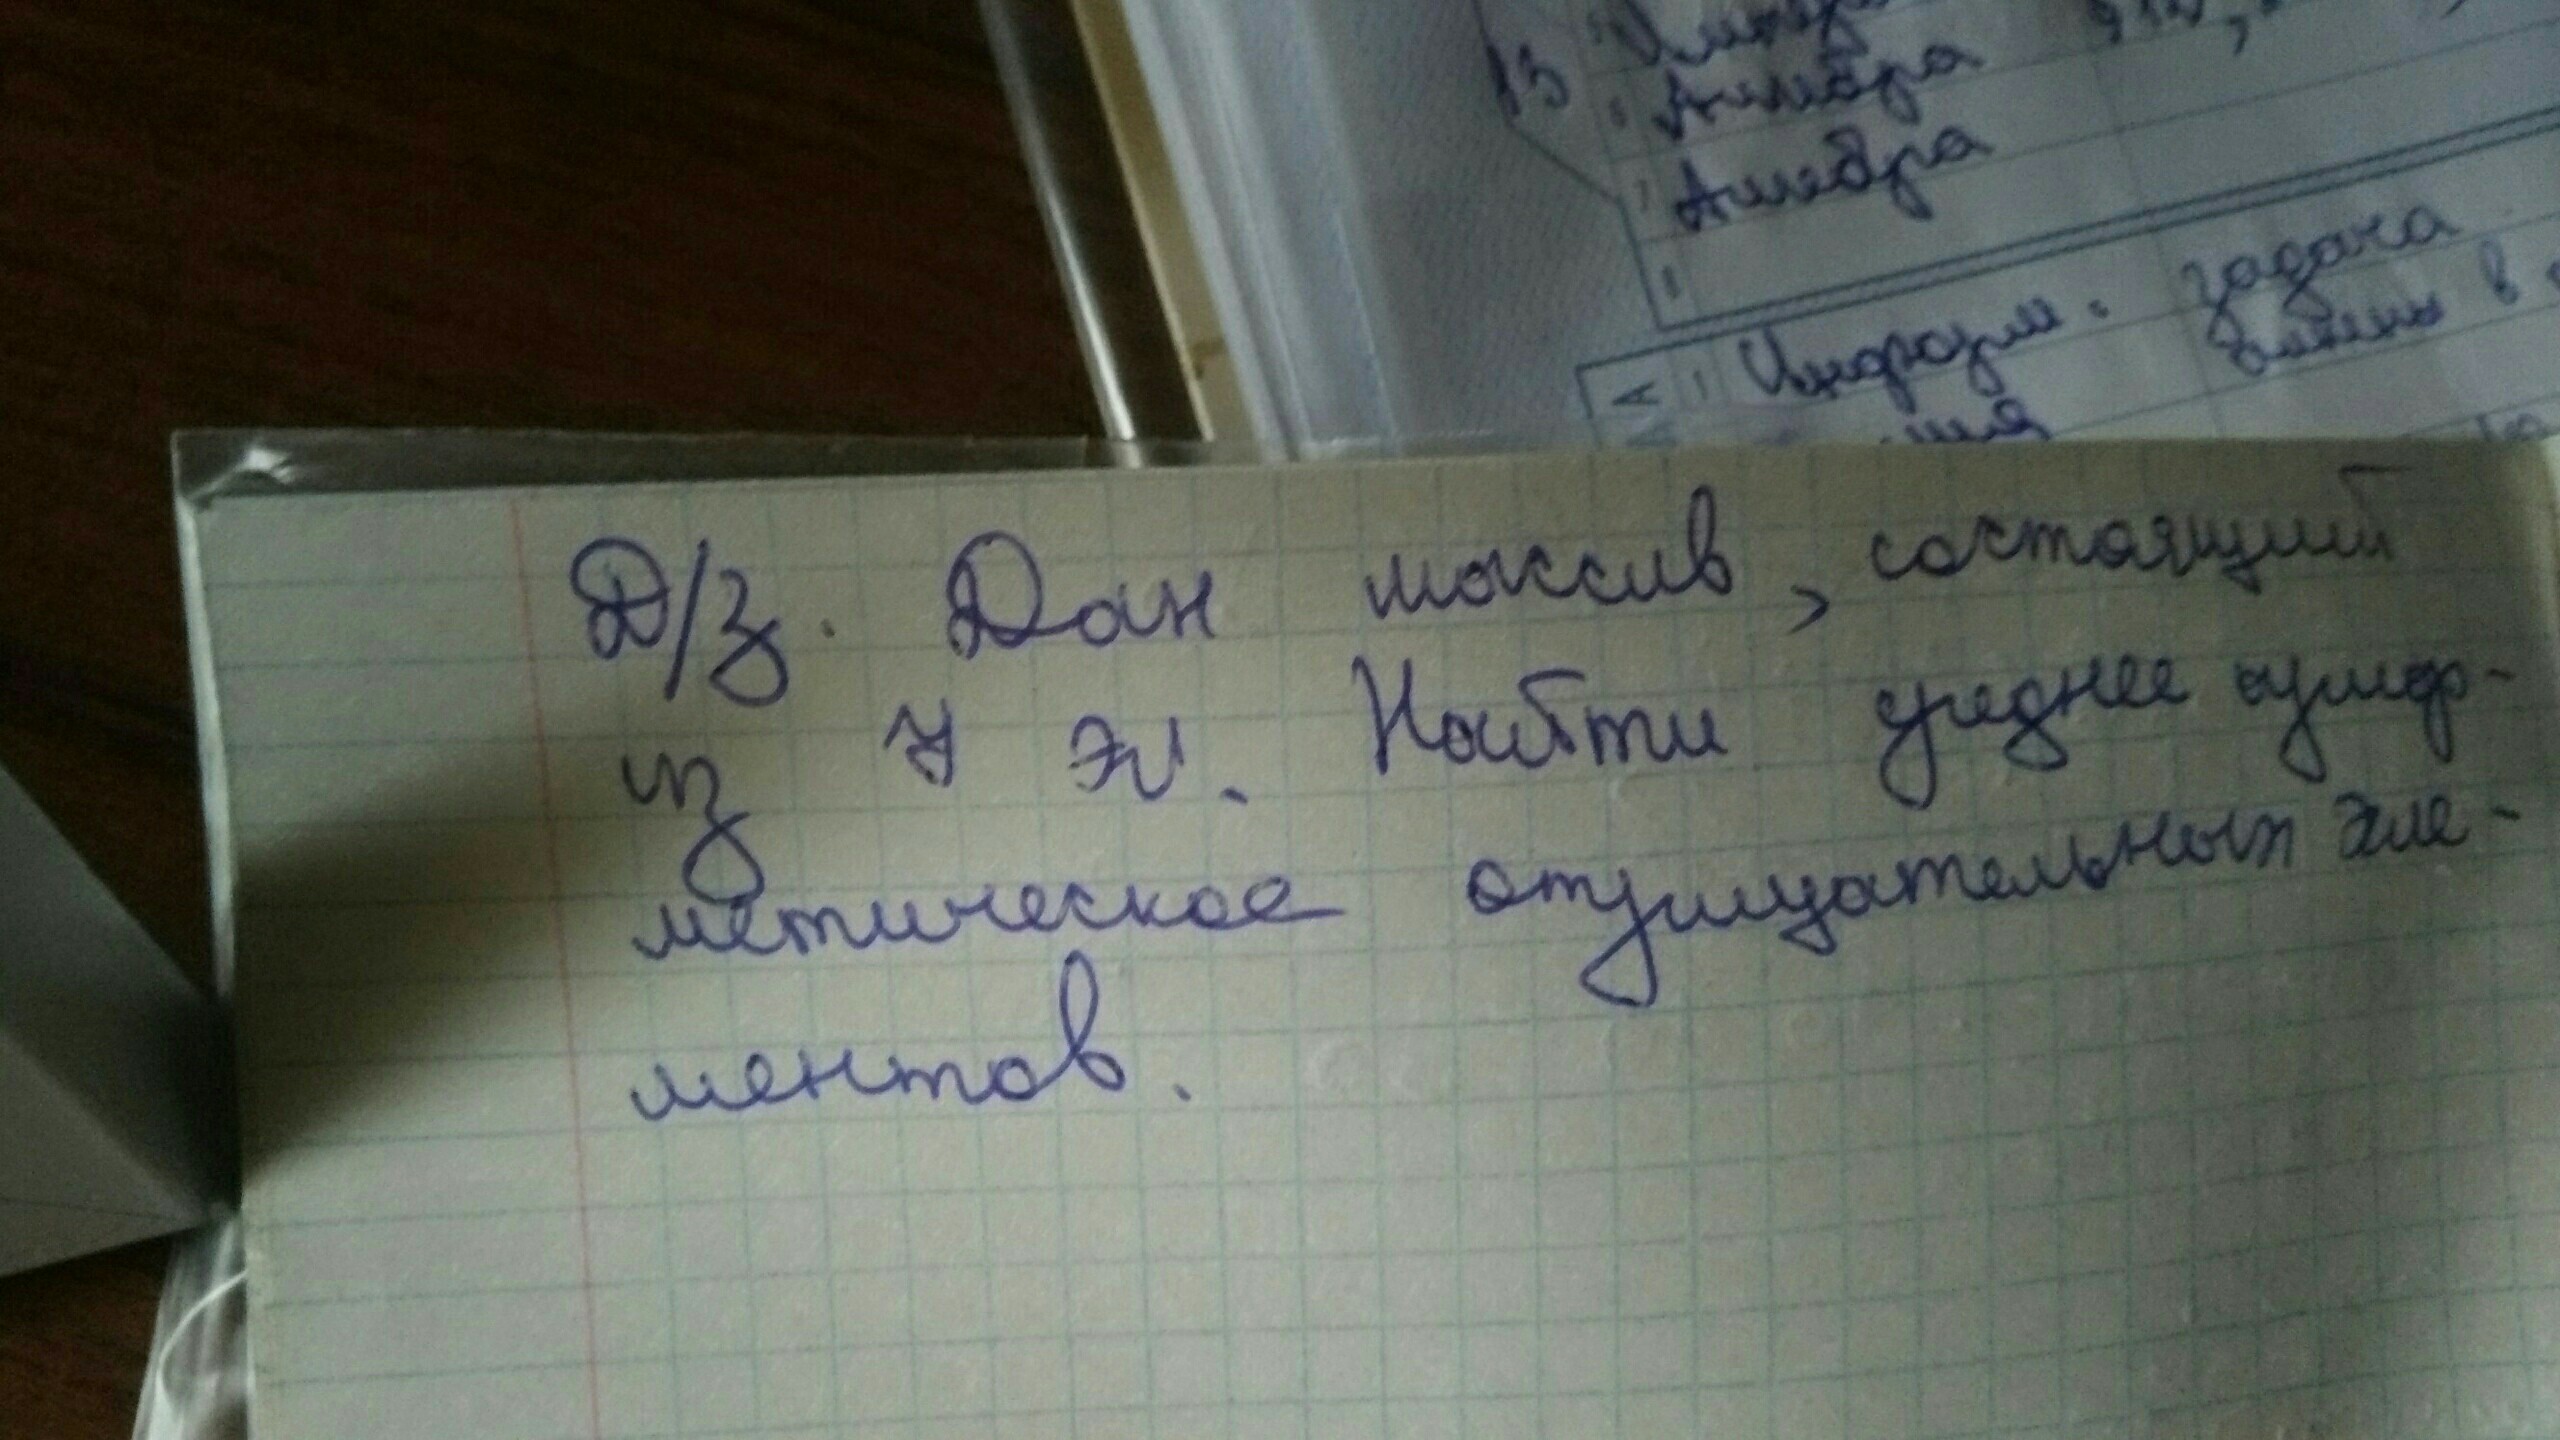 13
Алгебра
Алгебра
Информ. задача
в
Д/з. Дан массив, состоящий
из 7 эл. Найти среднее ариф-
метическое отрицательных эле-
ментов.